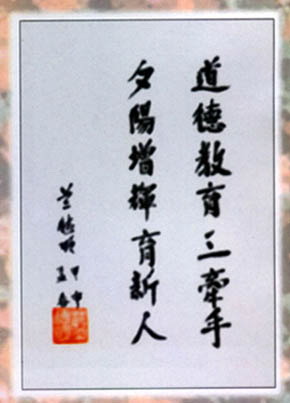 道德教育三牽手
夕陽增輝育新人
甲申